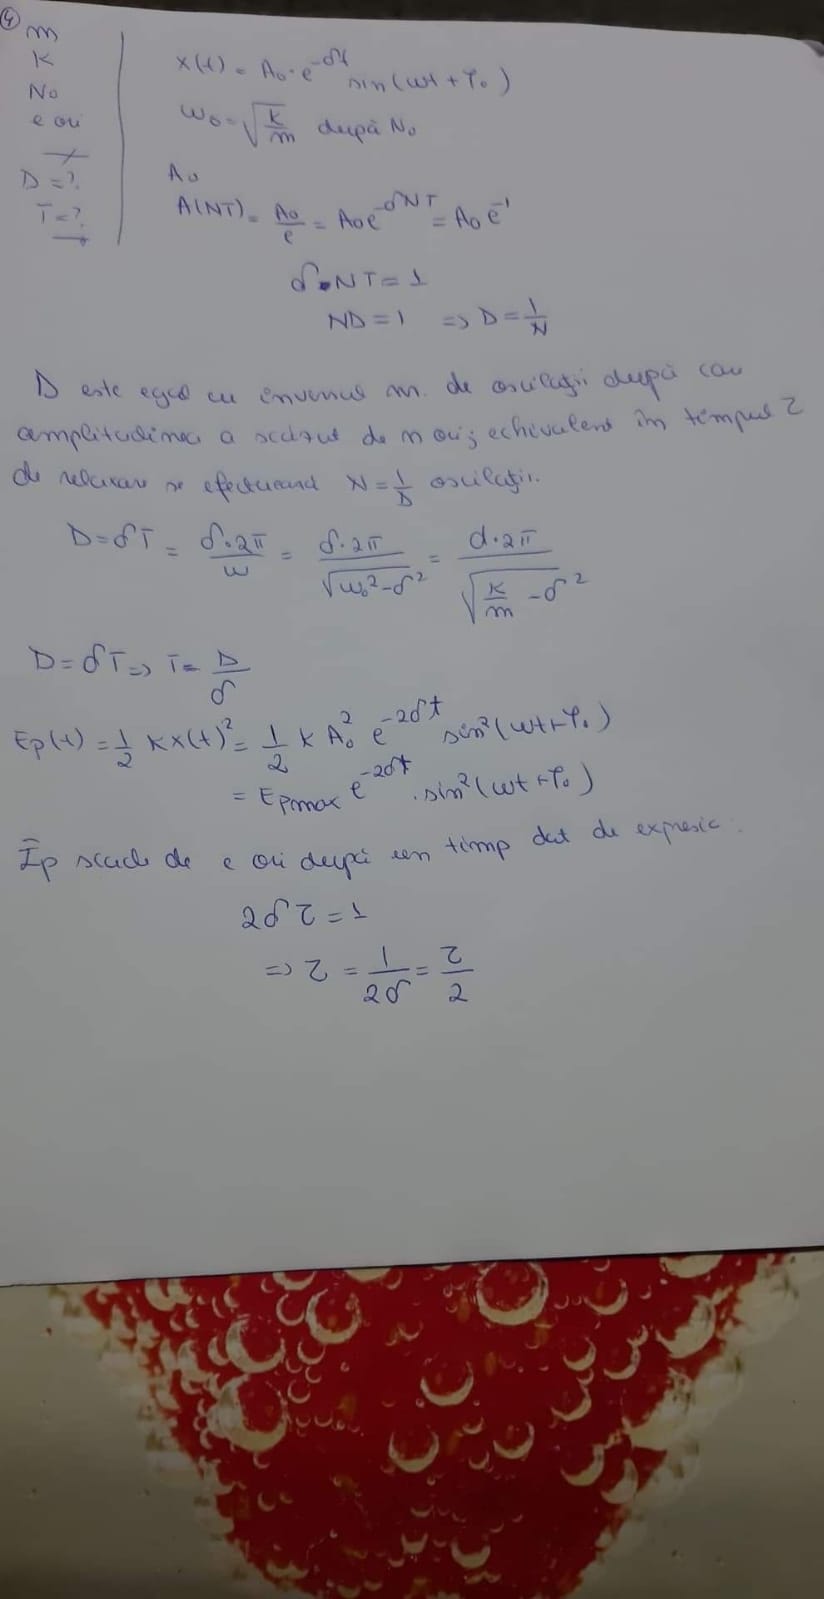 ④
m
K
N₀
e ori
D = ?
T = ?
x(t) = A₀·e^-δt sin(ωt + φ₀)
ω₀ = √(K/m) după N₀
A₀
A(NT) = A₀/e = A₀e^-δNT = A₀e^-1
δ·NT = 1
ND = 1 => D = 1/N
D este egal cu inversul nr. de oscilații după care
amplitudinea a scăzut de n ori; echivalent în timpul τ
de relaxare se efectuează N = 1/D oscilații.
D = δT = δ·2π/ω = δ·2π/√(ω₀²-δ²) = d·2π/√(K/m - δ²)
D = δT => T = D/δ
Ep(t) = 1/2 Kx(t)² = 1/2 K A₀² e^-2δt sin²(ωt+φ₀)
= Epmax e^-2δt · sin²(ωt+φ₀)
Ēp scade de e ori după un timp dat de expresia:
2δτ = 1
=> τ = 1/2δ = τ/2